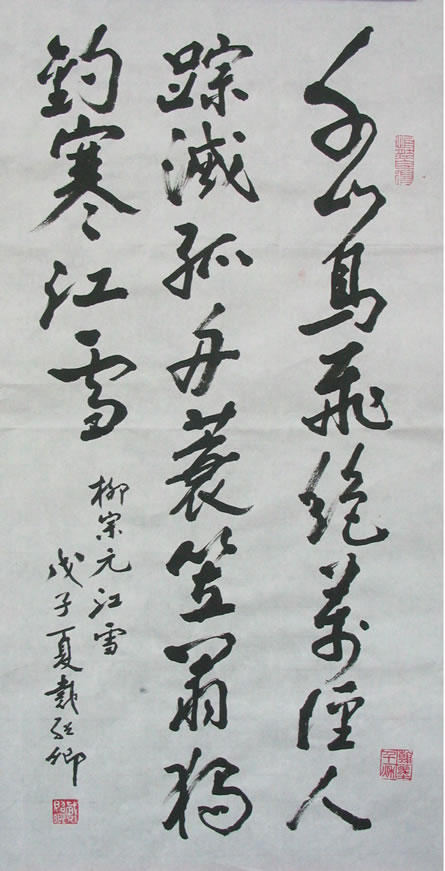 千山鳥飛絕萬徑人
踪滅孤舟蓑笠翁獨
釣寒江雪
柳宗元江雪
戊子夏戴卿